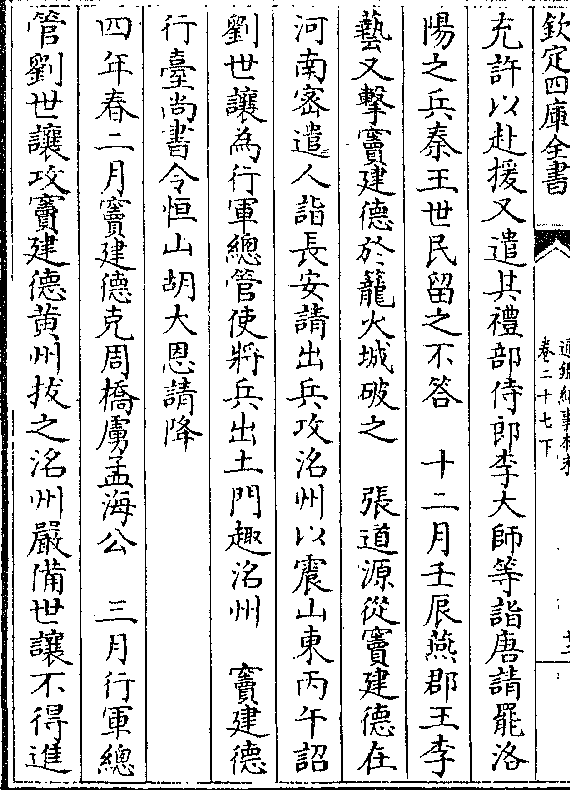 欽定四庫全書
通鑑紀事本末
卷二十七下
充許以赴援又遣其禮部侍郎李大師等詣唐請罷洛
陽之兵秦王世民留之不答　十二月壬辰燕郡王李
藝又擊竇建德於籠火城破之　張道源從竇建德在
河南密遣人詣長安請出兵攻洺州以震山東丙午詔
劉世讓為行軍總管使將兵出土門趣洺州　竇建德
行臺尚書令恒山胡大恩請降
四年春二月竇建德克周橋虜孟海公　三月行軍總
管劉世讓攻竇建德黄州拔之洺州嚴備世讓不得進